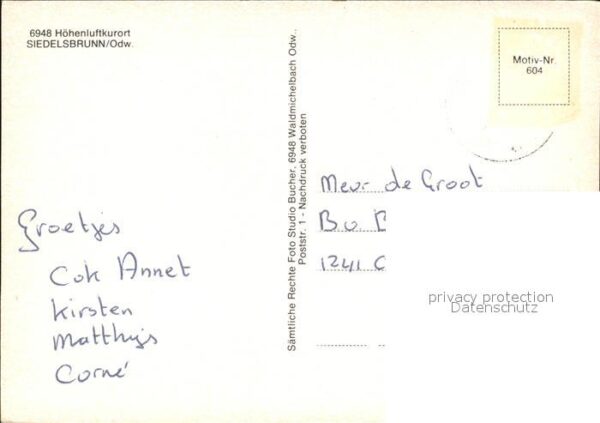 6948 Höhenluftkurort
SIEDELSBRUNN/Odw.
Motiv-Nr.
604
Sämtliche Rechte Foto Studio Bucher, 6948 Waldmichelbach Odw.,
Poststr. 1 - Nachdruck verboten
Groetjes
Cok Annet
Kirsten
Matthijs
Corné
Mevr. de Groot
B.v.
1241 C
privacy protection
Datenschutz